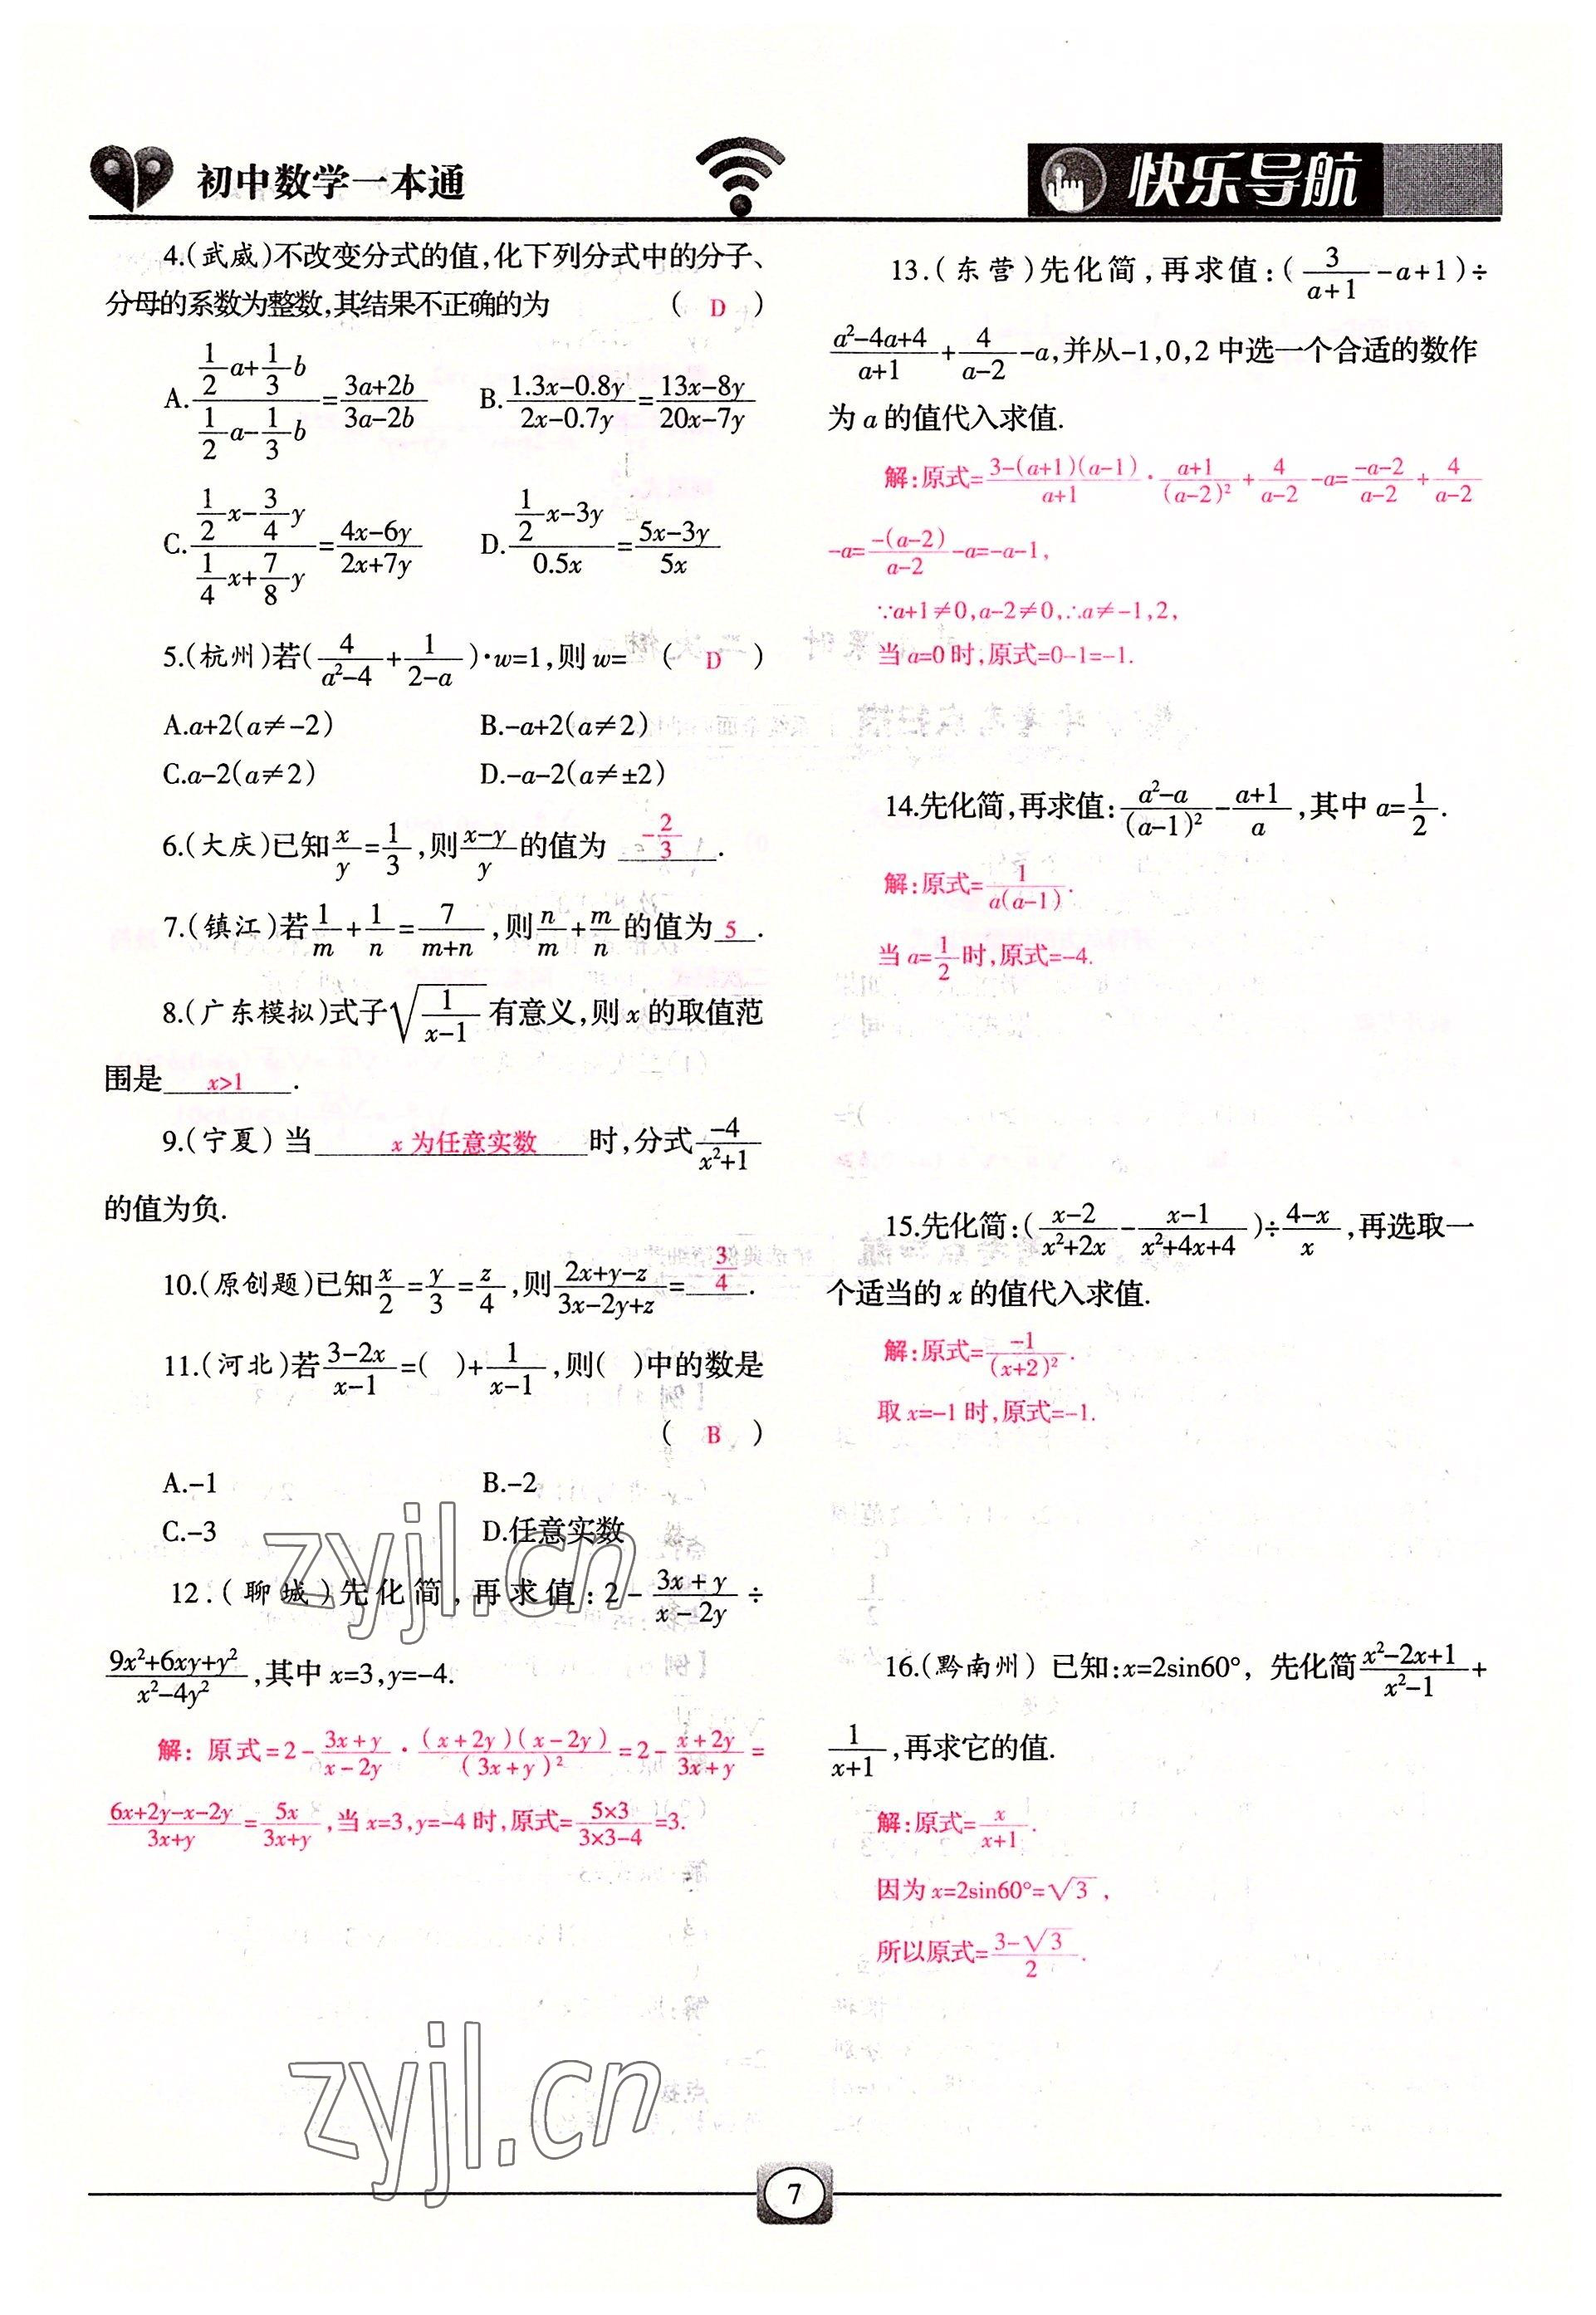 初中数学一本通
快乐导航
4.(武威)不改变分式的值,化下列分式中的分子、
分母的系数为整数,其结果不正确的为 ( D )
A.(1/2 a+1/3 b)/(1/2 a-1/3 b)=(3a+2b)/(3a-2b) B.(1.3x-0.8y)/(2x-0.7y)=(13x-8y)/(20x-7y)
C.(1/2 x-3/4 y)/(1/4 x+7/8 y)=(4x-6y)/(2x+7y) D.(1/2 x-3y)/0.5x=(5x-3y)/5x
5.(杭州)若(4/(a²-4)+1/(2-a))·w=1,则 w= ( D )
A.a+2(a≠-2) B.-a+2(a≠2)
C.a-2(a≠2) D.-a-2(a≠±2)
6.(大庆)已知x/y=1/3,则(x-y)/y的值为 -2/3 .
7.(镇江)若1/m+1/n=7/(m+n),则n/m+m/n的值为 5 .
8.(广东模拟)式子√(1/(x-1))有意义,则 x 的取值范
围是 x>1 .
9.(宁夏)当 x 为任意实数 时,分式-4/(x²+1)
的值为负.
10.(原创题)已知x/2=y/3=z/4,则(2x+y-z)/(3x-2y+z)= 3/4 .
11.(河北)若(3-2x)/(x-1)=( )+1/(x-1),则( )中的数是
( B )
A.-1 B.-2
C.-3 D.任意实数
12.(聊城)先化简,再求值:2-(3x+y)/(x-2y)÷
(9x²+6xy+y²)/(x²-4y²),其中 x=3,y=-4.
解:原式=2-(3x+y)/(x-2y)·(x+2y)(x-2y)/(3x+y)²=2-(x+2y)/(3x+y)=
(6x+2y-x-2y)/(3x+y)=5x/(3x+y),当 x=3,y=-4 时,原式=(5×3)/(3×3-4)=3.
13.(东营)先化简,再求值:(3/(a+1)-a+1)÷
(a²-4a+4)/(a+1)+4/(a-2)-a,并从-1,0,2 中选一个合适的数作
为 a 的值代入求值.
解:原式=(3-(a+1)(a-1))/(a+1)·(a+1)/(a-2)²+4/(a-2)-a=(-a-2)/(a-2)+4/(a-2)
-a=-(a-2)/(a-2)-a=-a-1,
∵a+1≠0,a-2≠0,∴a≠-1,2,
当 a=0 时,原式=0-1=-1.
14.先化简,再求值:(a²-a)/(a-1)²-(a+1)/a,其中 a=1/2.
解:原式=1/(a(a-1)).
当 a=1/2时,原式=-4.
15.先化简:((x-2)/(x²+2x)-(x-1)/(x²+4x+4))÷(4-x)/x,再选取一
个适当的 x 的值代入求值.
解:原式=-1/(x+2)².
取 x=-1 时,原式=-1.
16.(黔南州)已知:x=2sin60°,先化简(x²-2x+1)/(x²-1)+
1/(x+1),再求它的值.
解:原式=x/(x+1).
因为 x=2sin60°=√3,
所以原式=(3-√3)/2.
zyjl.cn
zyjl.cn
7